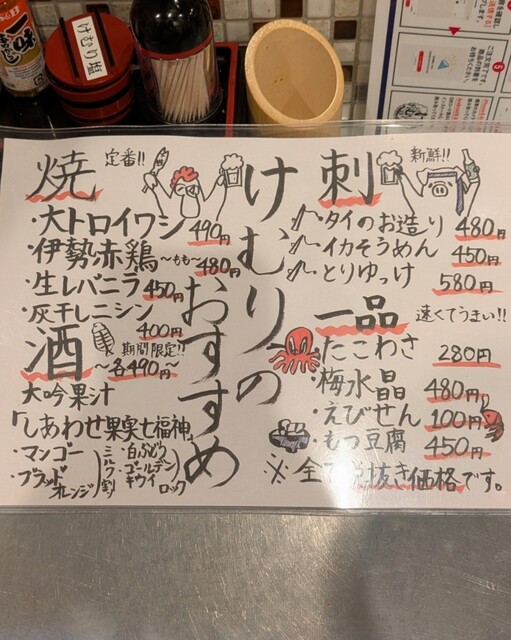 けむり塩
けむりの
おすすめ
刺 新鮮!!
タイのお造り 480円
イカそうめん 450円
とりゆっけ 580円
一品 速くてうまい!!
たこわさ 280円
・梅水晶 480円
・えびせん 100円
・もつ豆腐 450円
※全て税抜き価格です。
焼 定番!!
・大トロイワシ 490円
・伊勢赤鶏 ~もも~ 480円
・生レバニラ 450円
・灰干しニシン 400円
酒 期間限定!!
~各490円~
大吟果汁
「しあわせ果実七福神」
・マンゴー
・ブラッドオレンジ
・白ぶどう
・ゴールデンキウイ
ミルク割
ロック